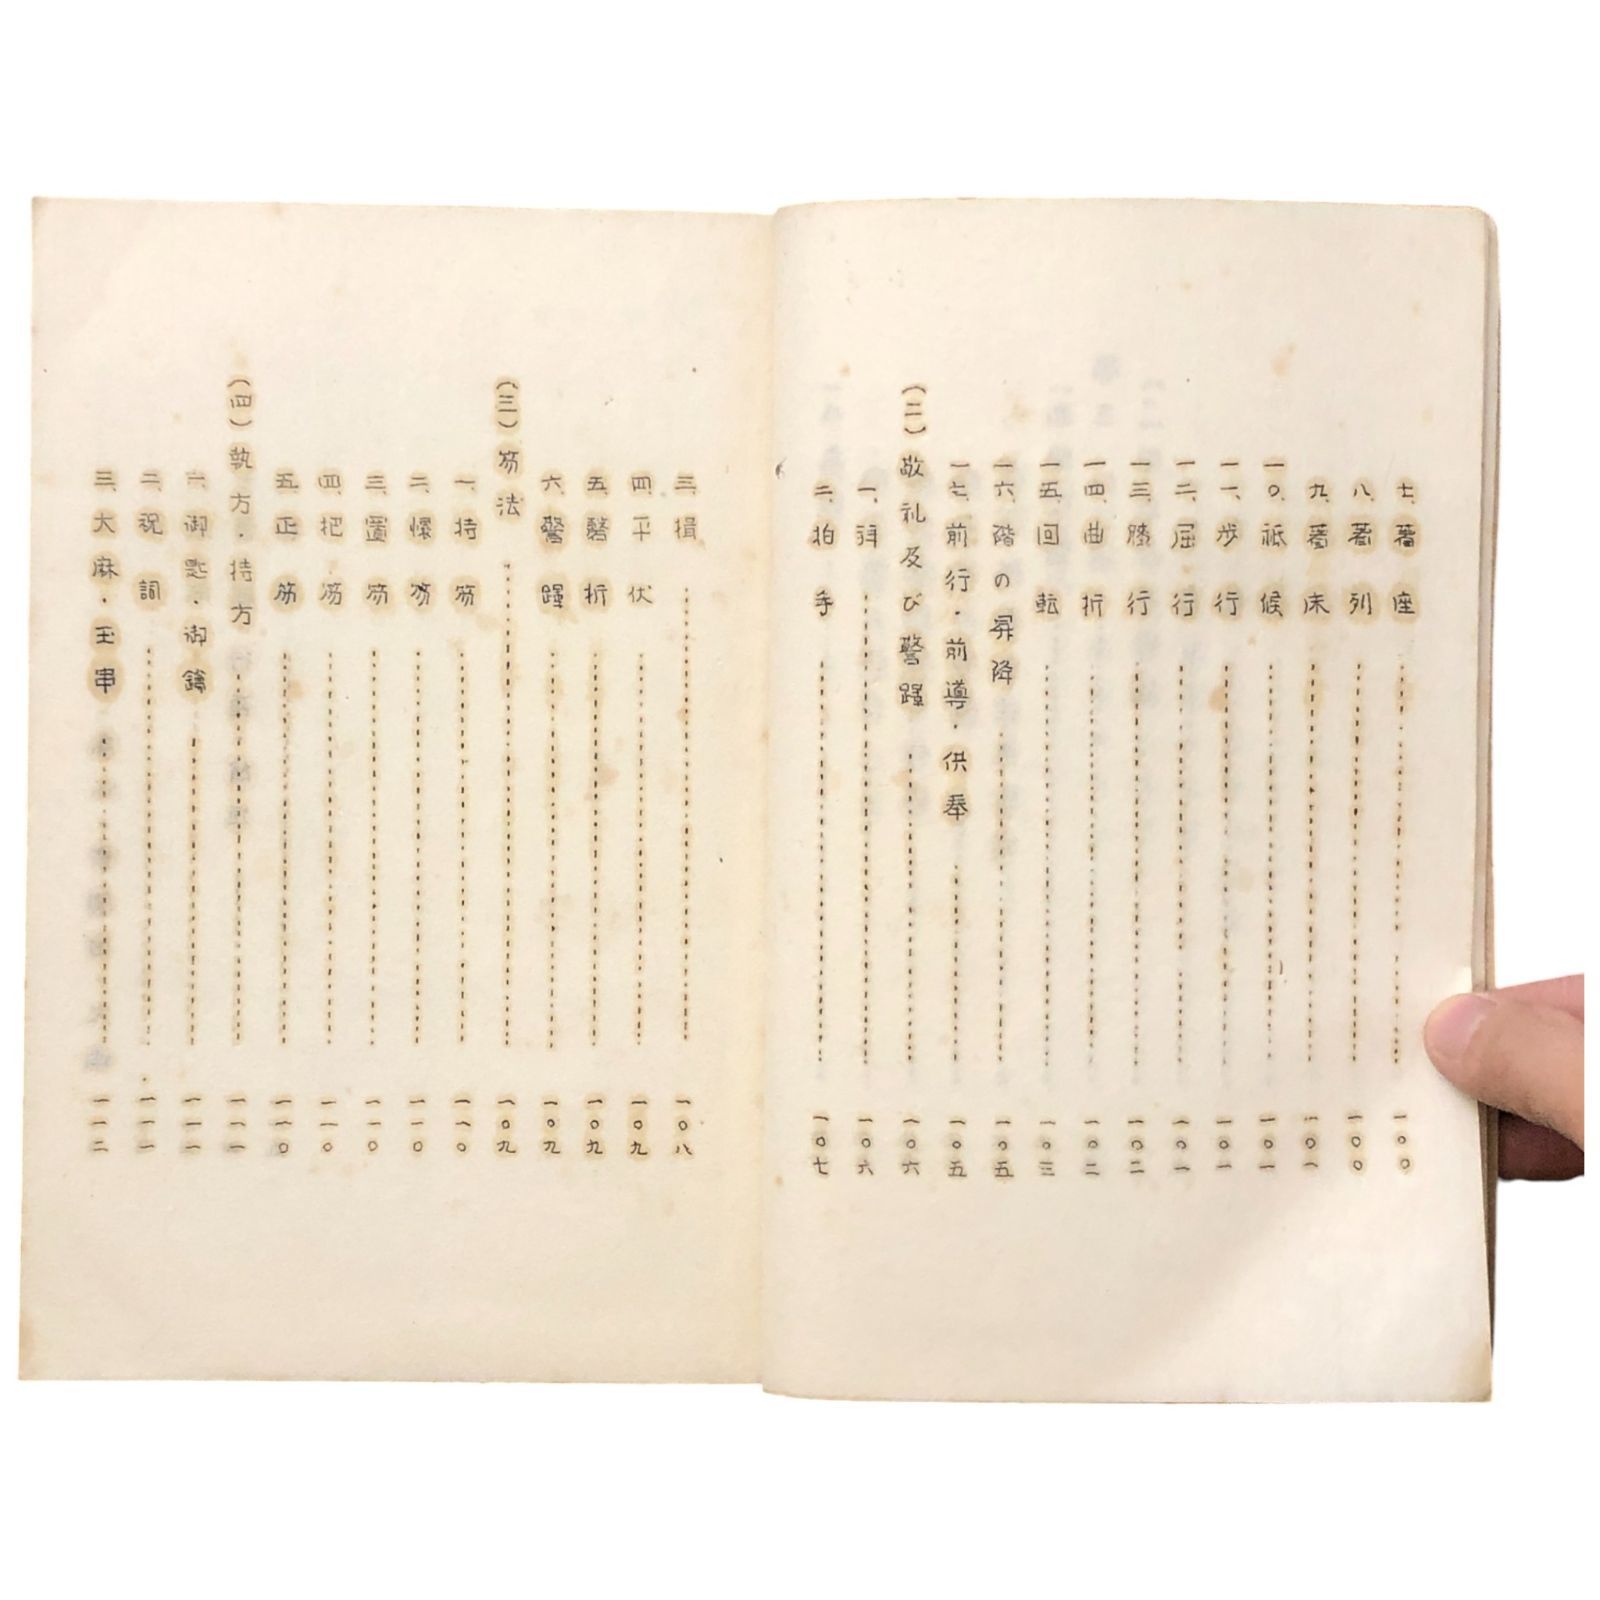 七、著座 一〇〇
八、著列 一〇〇
九、著床 一〇一
一〇、祗候 一〇一
一一、歩行 一〇一
一二、屈行 一〇一
一三、膝行 一〇二
一四、曲折 一〇二
一五、回転 一〇三
一六、階の昇降 一〇五
一七、前行・前導・供奉 一〇五
(二)敬礼及び警蹕 一〇六
一、拝 一〇六
二、拍手 一〇七
三、揖 一〇八
四、平伏 一〇九
五、磬折 一〇九
六、警蹕 一〇九
(三)笏法 一〇九
一、持笏 一一〇
二、懐笏 一一〇
三、置笏 一一〇
四、把笏 一一〇
五、正笏 一一〇
(四)執方・持方 一一一
御匙・御鑰 一一一
二、祝詞 一一一
三、大麻・玉串 一一二